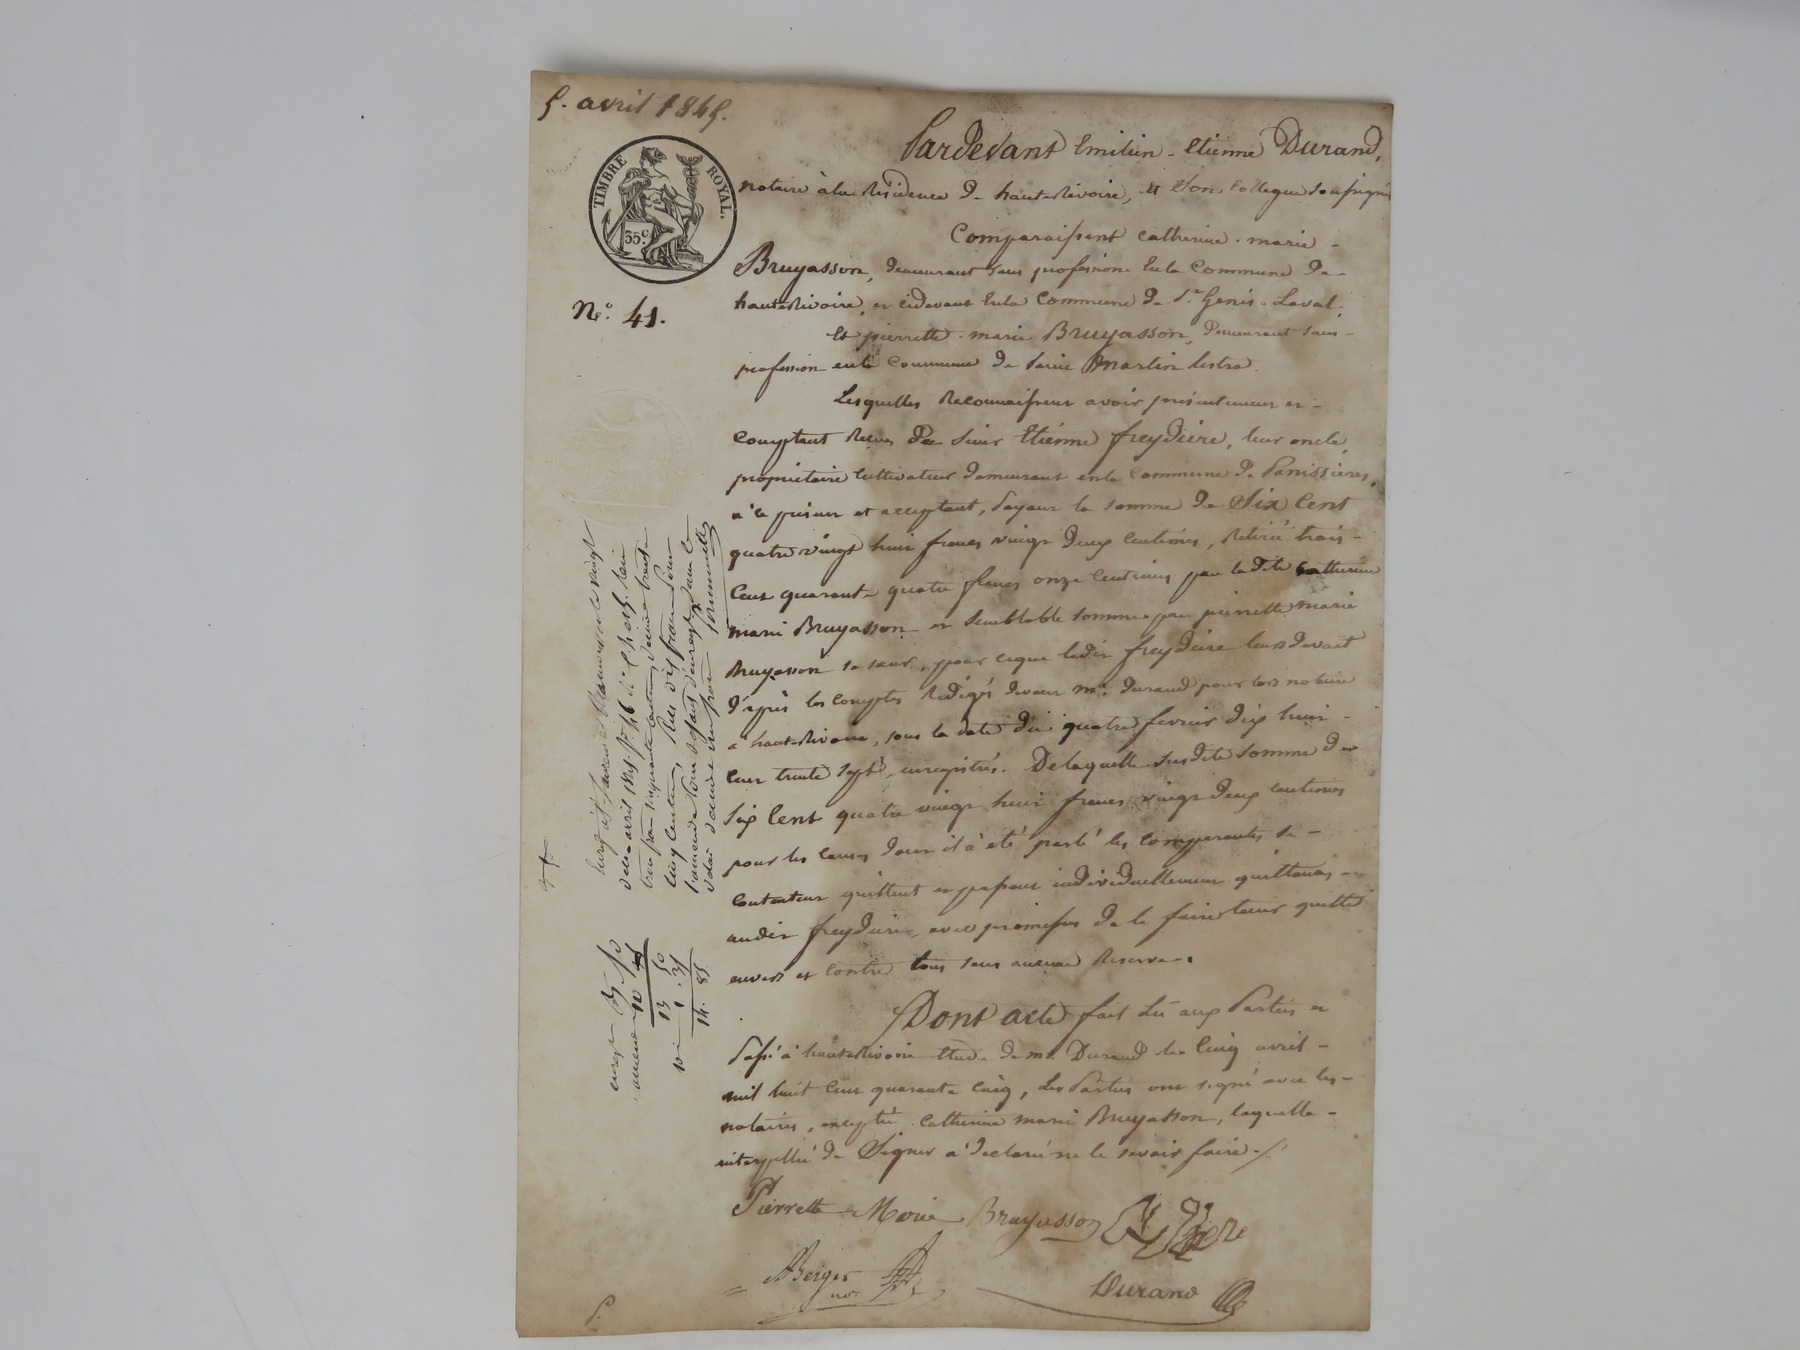 5. avril 1845.
TIMBRE ROYAL.
35 c
N.o 41.
Pardevant Emilien - Etienne Durand,
notaire à la Résidence de haute-Rivoire, et Son Collegue soussigné
Comparaissent Catherine - marie -
Bruyasson, demeurant sans profession en la Commune de
haute-Rivoire, et cidevant en la Commune de St Genis-Laval,
Et pierrette - marie Bruyasson, demeurant sans -
profession en la Commune de Saint Martin lestra.
Lesquelles Reconnaissent avoir présentement et -
Comptant Reçus du Sieur Etienne freydière, leur oncle,
propriétaire Cultivateur demeurant en la Commune de Panissières,
à ce présent et acceptant, payeur la somme de Six Cent
quatre vingt huit francs vingt deux Centimes, Retiré trois -
Cent quarante quatre francs onze Centimes par la dite Catherine
marie Bruyasson et semblable somme par pierrette marie
Bruyasson sa sœur, pour ce que ledit freydière leurs devait
d'après les Comptes Rédigés devant Me. Durand pour lors notaire
à haute-Rivoire, sous la date du quatre fevrier dix huit -
cent trente sept, enregistrés. De laquelle susdite somme de
Six Cent quatre vingt huit francs vingt deux centimes
pour les causes dont il à été parlé les comparantes se -
contentent quittent et passent individuellement quittances -
audit freydière, avec promesses de le faire tenir quitte
envers et contre tous sans aucune Réserve.
Dont acte fait Lu aux Parties et
Passé à haute-Rivoire Etude de me. Durand le Cinq avril -
mil huit Cent quarante Cinq, Les Parties ont signé avec les -
notaires, excepté Catherine marie Bruyasson, laquelle -
interpellée de Signer à déclaré ne le savoir faire ./.
Pierrette Marie Bruyasson
Berger
no.
Durand
avril 1845 f° 46
trois francs cinquante centimes, décime trente
cinq centimes, Reçu dix francs pour
l'amende pour défaut d'enreg. dans le
délai décime un franc
3 50
10
13 50
1. 35
14. 85